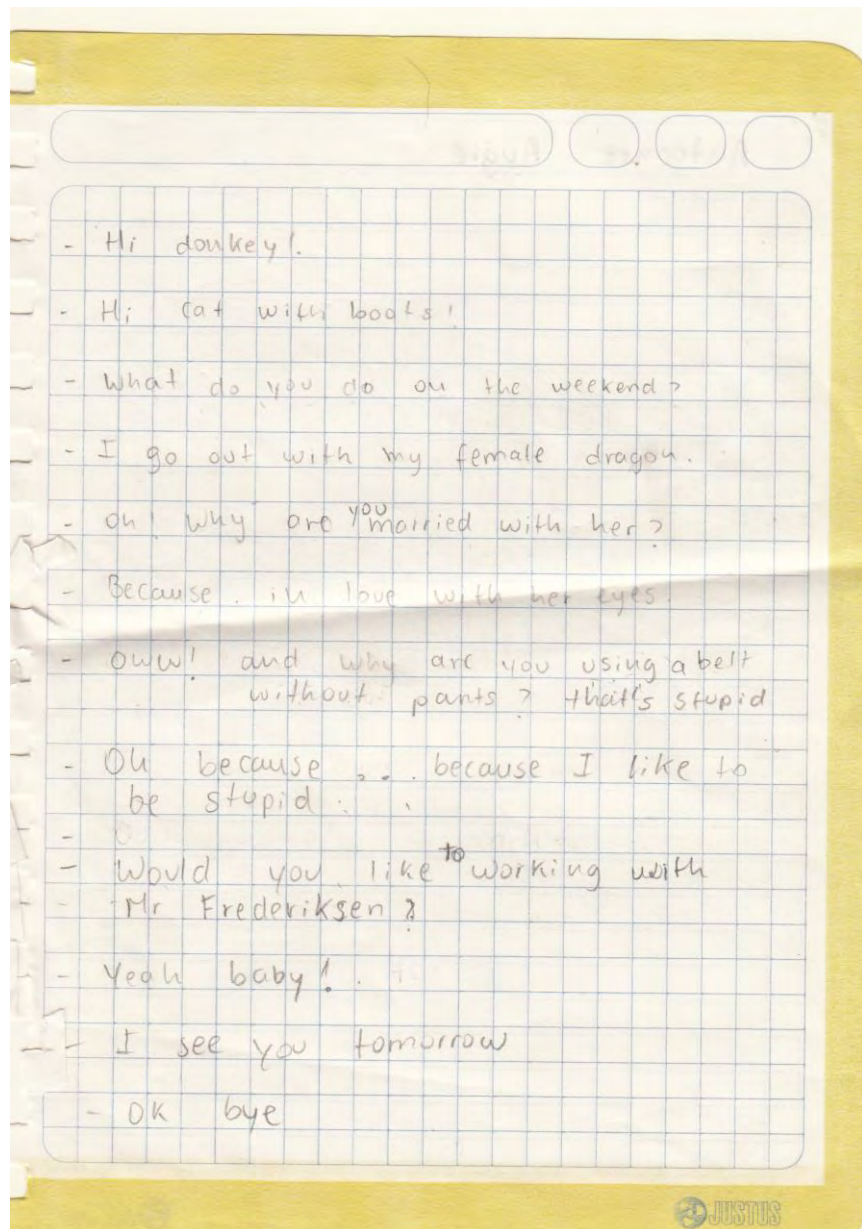 - Hi donkey!
- Hi cat with boots!
- What do you do on the weekend?
- I go out with my female dragon.
- Oh! Why are you married with her?
- Because . in love with her eyes.
- Oww! and why are you using a belt
without pants? that's stupid
- Oh because ... because I like to
be stupid . .
-
- Would you like to working with
- Mr Frederiksen?
- Yeah baby!.
- I see you tomorrow
- OK bye
JUSTUS